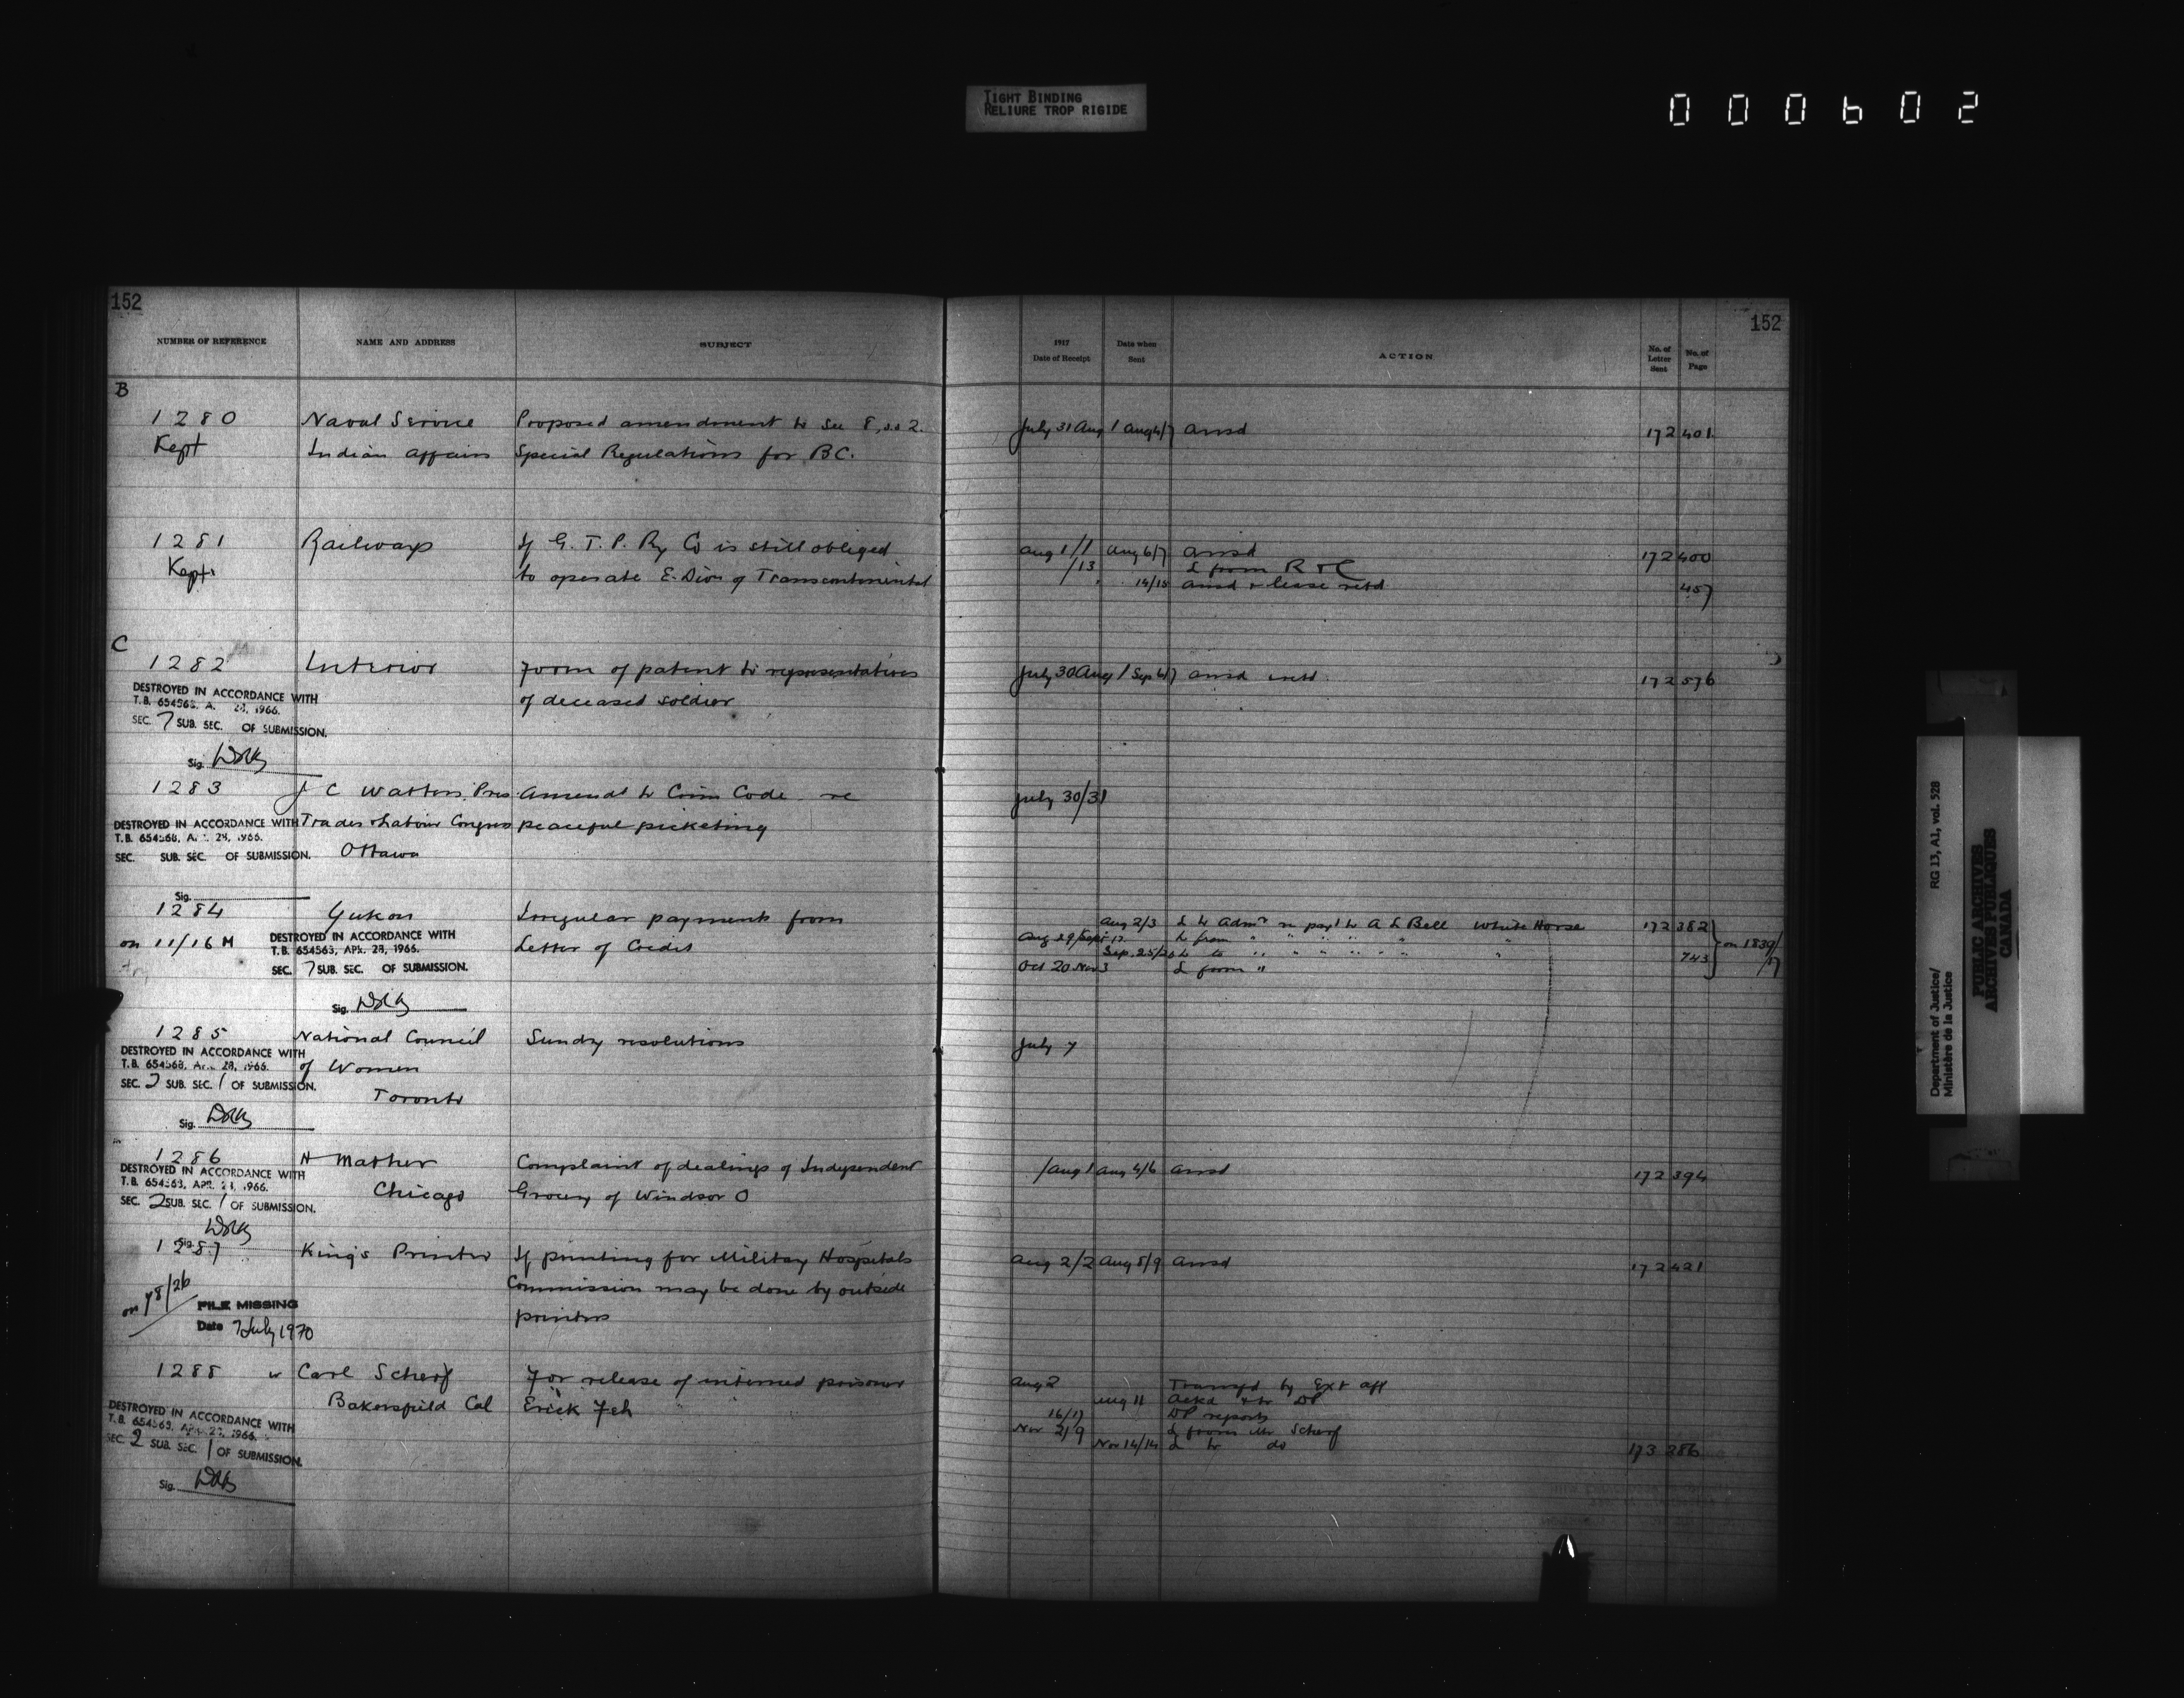 TIGHT BINDING
RELIURE TROP RIGIDE
000602
152
152
NUMBER OF REFERENCE NAME AND ADDRESS SUBJECT 1917 Date of Receipt Date when Sent ACTION No. of Letter Sent No. of Page
B
1280 Naval Service Proposed amendment to Sec 8, ss 2. July 31 Aug 1 Aug 4/7 ansd 172 401
Kept Indian Affairs Special Regulations for B.C.
1281 Railways If G. T. P. Ry Co is still obliged Aug 1/1 Aug 6/7 ansd 172 400
Kept to operate E. Divn of Transcontinental /13 L from R & C
14/15 ansd & lease retd 457
C
1282 Interior Form of patent to representatives July 30 Aug 1 Sep 4/7 ansd 172 576
of deceased soldier
DESTROYED IN ACCORDANCE WITH
T.B. 654563, A. 28, 1966.
SEC. 7 SUB. SEC. OF SUBMISSION.
Sig.
1283 J C Watters, Pres Amendt to Crim Code re July 30/31
Trades & Labour Congress peaceful picketing
Ottawa
DESTROYED IN ACCORDANCE WITH
T.B. 654563, A. 28, 1966.
SEC. SUB. SEC. OF SUBMISSION.
Sig.
1284 Yukon Irregular payments from Aug 2/3 L to Admr re payt to A L Bell White Horse 172 382
on 11/16 M Letter of Credit Aug 29/Sept 12 L from " " " " " " on 1839/17
Sep. 25/26 L to " " " " " " 743
Oct 20 Nov 3 L from "
DESTROYED IN ACCORDANCE WITH
T.B. 654563, APR. 28, 1966.
SEC. 7 SUB. SEC. OF SUBMISSION.
Sig.
1285 National Council Sundry resolutions July 7
of Women
Toronto
DESTROYED IN ACCORDANCE WITH
T.B. 654563, APR. 28, 1966.
SEC. 2 SUB. SEC. 1 OF SUBMISSION.
Sig.
1286 H Mather Complaint of dealings of Independent /Aug 1 Aug 4/6 ansd 172 394
Chicago Grocery of Windsor O
DESTROYED IN ACCORDANCE WITH
T.B. 654563, APR. 28, 1966.
SEC. 2 SUB. SEC. 1 OF SUBMISSION.
Sig.
1287 King's Printer If printing for Military Hospitals Aug 2/2 Aug 8/9 ansd 172 421
Commission may be done by outside
printers
on 78/26
FILE MISSING
Date 7 July 1970
1288 Carl Scherf For release of interned prisoner Aug 2 Transfd by Ext aff
Bakersfield Cal Erick Feh Aug 11 Ackd & to DP
16/17 DP reports
Nov 2/9 L from Mr Scherf
Nov 14/14 L to do 173 386
DESTROYED IN ACCORDANCE WITH
T.B. 654563, APR. 28, 1966.
SEC. 2 SUB. SEC. 1 OF SUBMISSION.
Sig.
Department of Justice/ RG 13, A1, vol. 528
Ministère de la Justice
PUBLIC ARCHIVES
ARCHIVES PUBLIQUES
CANADA